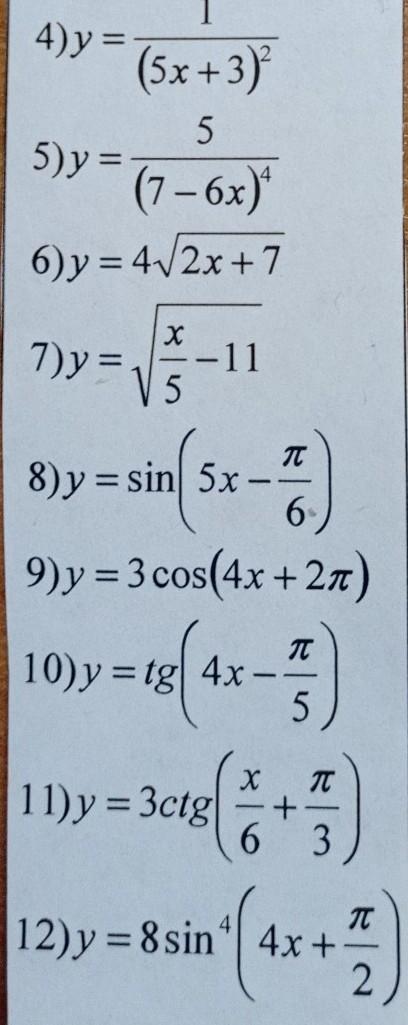 4) y = 1/(5x + 3)²
5) y = 5/(7 − 6x)⁴
6) y = 4√(2x + 7)
7) y = √(x/5 − 11)
8) y = sin(5x − π/6)
9) y = 3 cos(4x + 2π)
10) y = tg(4x − π/5)
11) y = 3ctg(x/6 + π/3)
12) y = 8 sin⁴(4x + π/2)